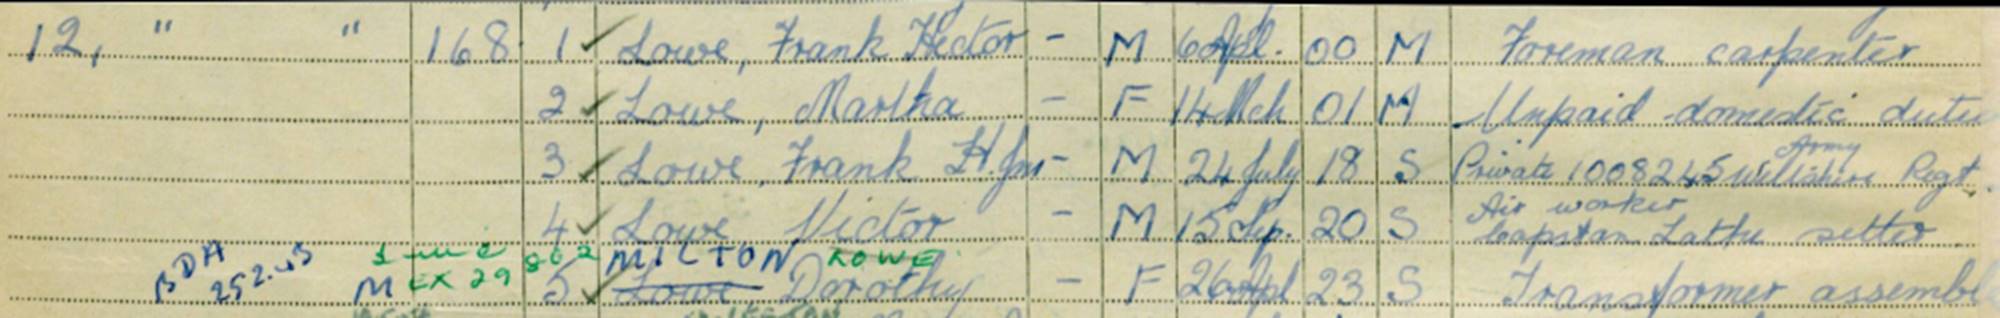 12, " " 168 1 ✓ Lowe, Frank Hector - M 6 Apl. 00 M Foreman carpenter
2 ✓ Lowe, Martha - F 14 Mch 01 M Unpaid domestic
3 ✓ Lowe, Frank H. Jnr - M 24 July 18 S Private 1008245 Wiltshire Regt.
Army
4 ✓ Lowe Victor - M 15 Sep. 20 S Air worker
Capstan Lathe setter
BDA 252.43
M EX 29 862 MILTON LOWE
5 ✓ Lowe, Dorothy - F 26 Apl 23 S Transformer